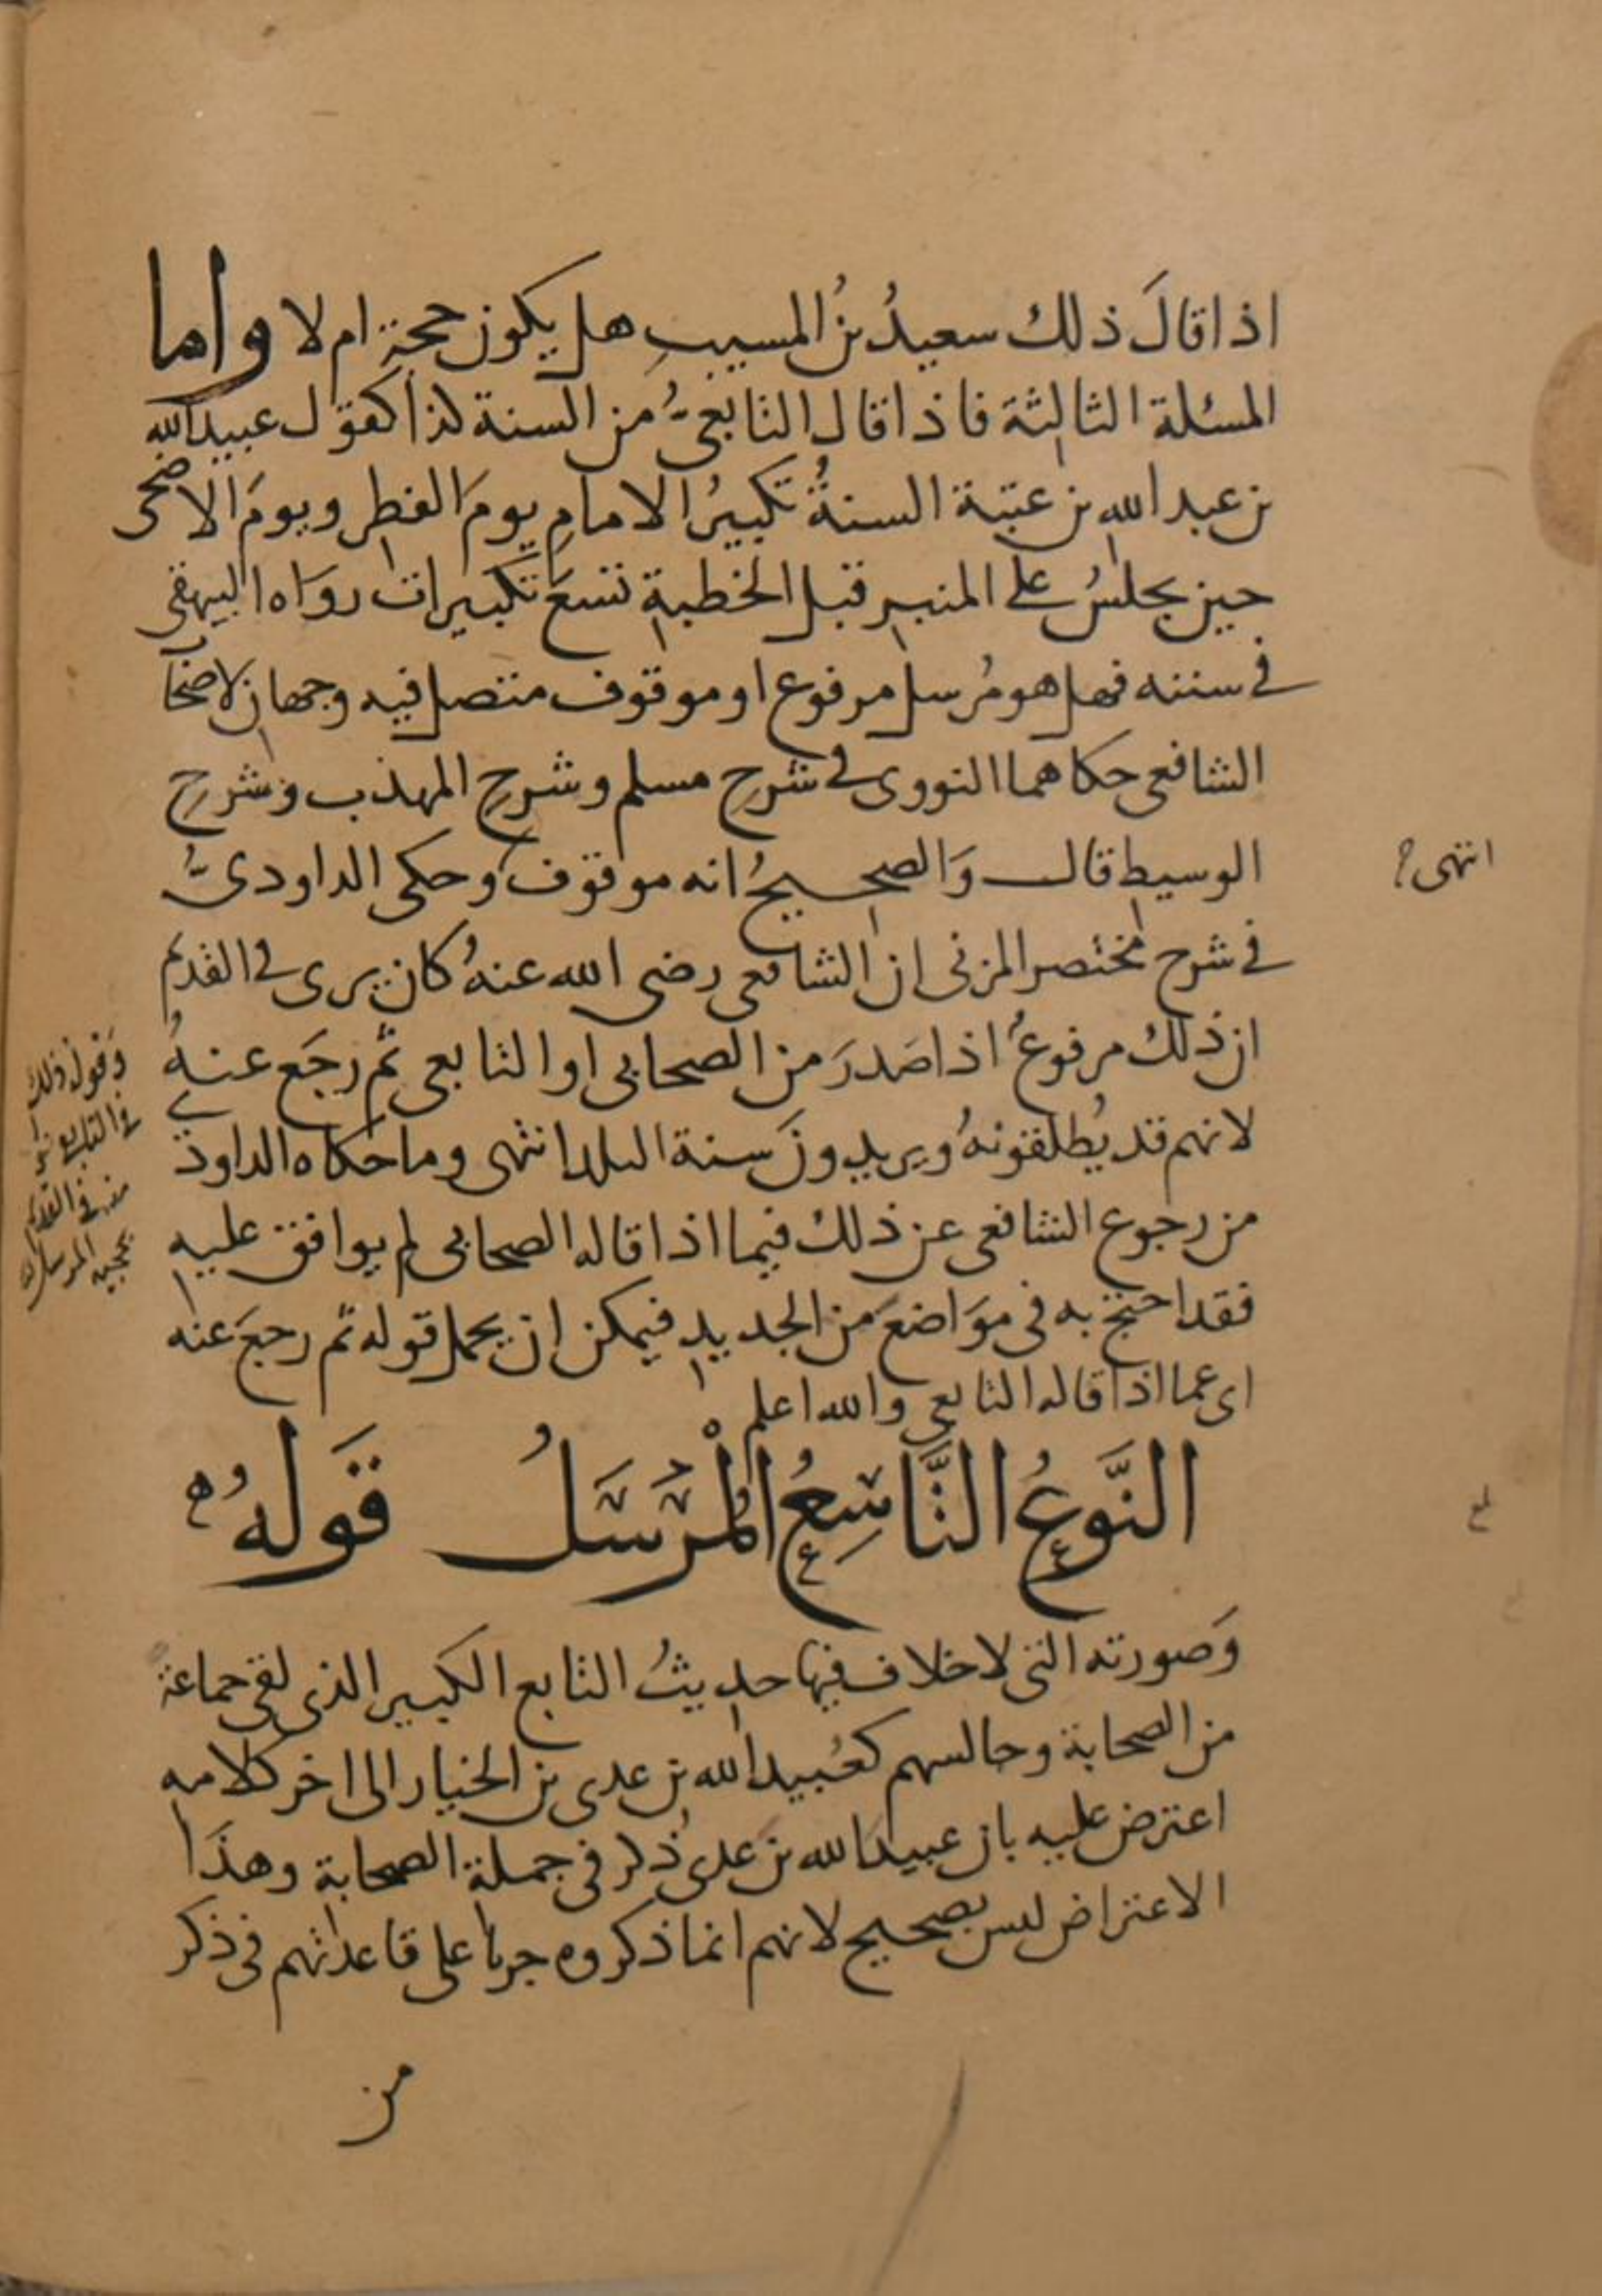 اذا قالَ ذلك سعيدُ بنُ المسيبِ هل يكون حجة ام لا واما
المسئلة الثالثة فاذا قال التابعيُّ من السنة كذا كقول عبيد الله
بن عبد الله بن عتبة السنةُ تكبيرُ الامامِ يومَ الفطرِ ويومَ الاضحى
حين يجلسُ على المنبر قبل الخطبةِ تسعَ تكبيرات رواه البيهقى
فى سننه فهل هو مُرسل مرفوع او موقوف متصل فيه وجهان لاصحاب
الشافعى حكاهما النووى فى شرحِ مسلم وشرحِ المهذب وشرحِ
الوسيط قال وَالصحيحُ انه موقوف وحكى الداودىُّ
انتهى
فى شرح مختصر المزنى ان الشافعى رضى الله عنهُ كان يرى فى القديم
ان ذلك مرفوعُ اذا صَدرَ من الصحابى او التابعى ثم رجَع عنهُ
لانهم قد يُطلقونهُ ويريدونَ سنة البلد انتهى وما حكاه الداودى
من رجوع الشافعى عن ذلك فيما اذا قاله الصحابى لم يوافق عليه
فقد احتج به فى موَاضعَ من الجديدِ فيمكن ان يحمل قوله ثم رجعَ عنه
اى عما اذا قاله التابعى والله اعلم
النَّوعُ التَّاسِعُ الْمُرْسَلُ قَولهُ
وَصورته التى لا خلاف فيها حديثُ التابع الكبير الذى لقى جماعة
من الصحابة وجالسهم كعُبيد الله بن عدى بن الخيار الى اخر كلامه
اعترض عليه بان عبيدَ الله بن عدى ذُكر فى جملة الصحابة وهذَا
الاعتراض ليس بصحيح لانهم انما ذكروه جريا على قاعدتهم فى ذكر
من